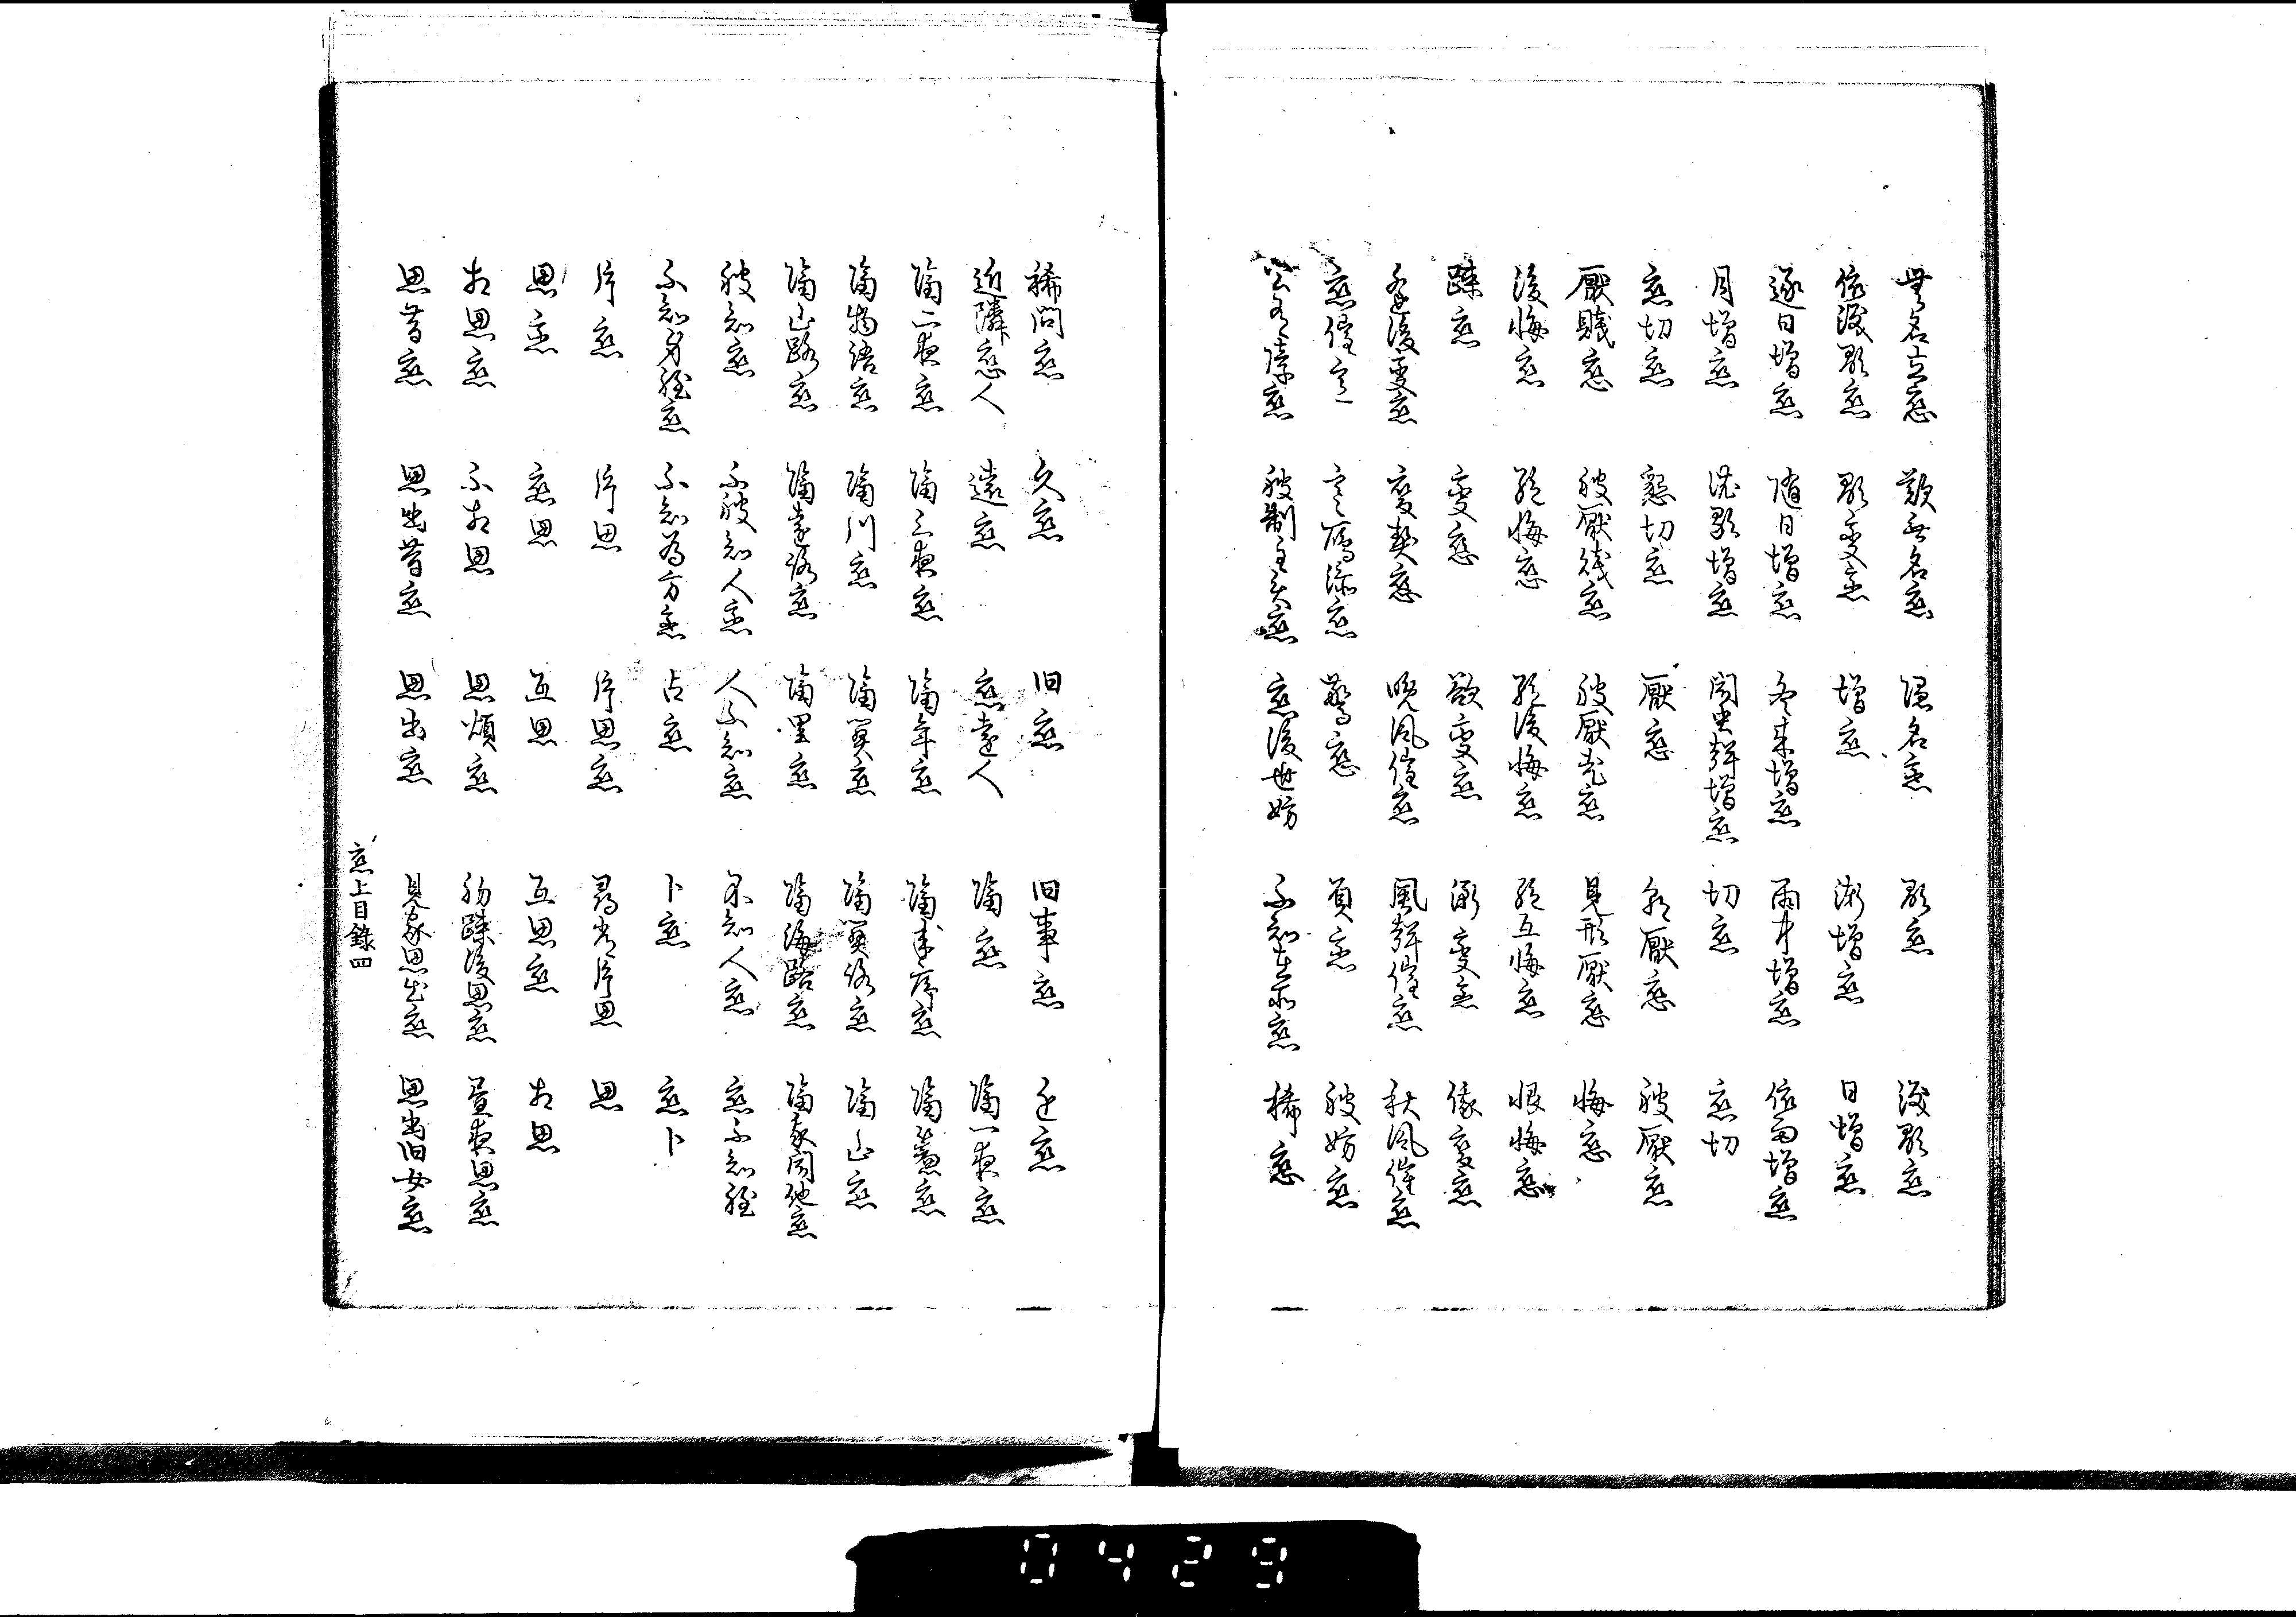 無名立恋 歎無名恋 隠名恋 顕恋 後顕恋
依涙顕恋 顕変恋 増恋 漸増恋 日増恋
逐日増恋 随日増恋 冬来増恋 雨中増恋 依雨増恋
月増恋 洩顕増恋 聞虫声増恋 切恋 恋切
恋切恋 懇切恋 厭恋 欲厭恋 被厭恋
厭賤恋 被厭賤恋 被厭老恋 見形厭恋 悔恋
後悔恋 絶悔恋 絶後悔恋 絶互悔恋 恨悔恋
疎恋 変恋 欲変恋 漸変恋 俄変恋
逢後変恋 変契恋 晩風催恋 風声催恋 秋風催恋
恋催 驚恋 負恋 被妨恋
障恋 被制 恋 恋後世妨 不知在所恋 稀恋
稀問恋 久恋 旧恋 旧事恋 近恋
近隣恋人 遠恋 恋遠人 隔恋 隔一夜恋
隔二夜恋 隔三夜恋 隔年恋 隔恋 隔簾恋
隔物語恋 隔川恋 隔関恋 隔関路恋 隔山恋
隔山路恋 隔遠路恋 隔里恋 隔海路恋 隔家聞他恋
被知恋 不被知人恋 人不知恋 不知人恋 恋不知程
不知身程恋 不知為方恋 占恋 卜恋 恋卜
片恋 片思 片思恋 片思 思
思恋 恋思 互思 互思恋 相思
相思恋 不相思 思煩恋 初疎後思恋 昼夜思恋
思昔恋 思出昔恋 思出恋 見家思出恋 思出旧女恋
恋上目録四
0429